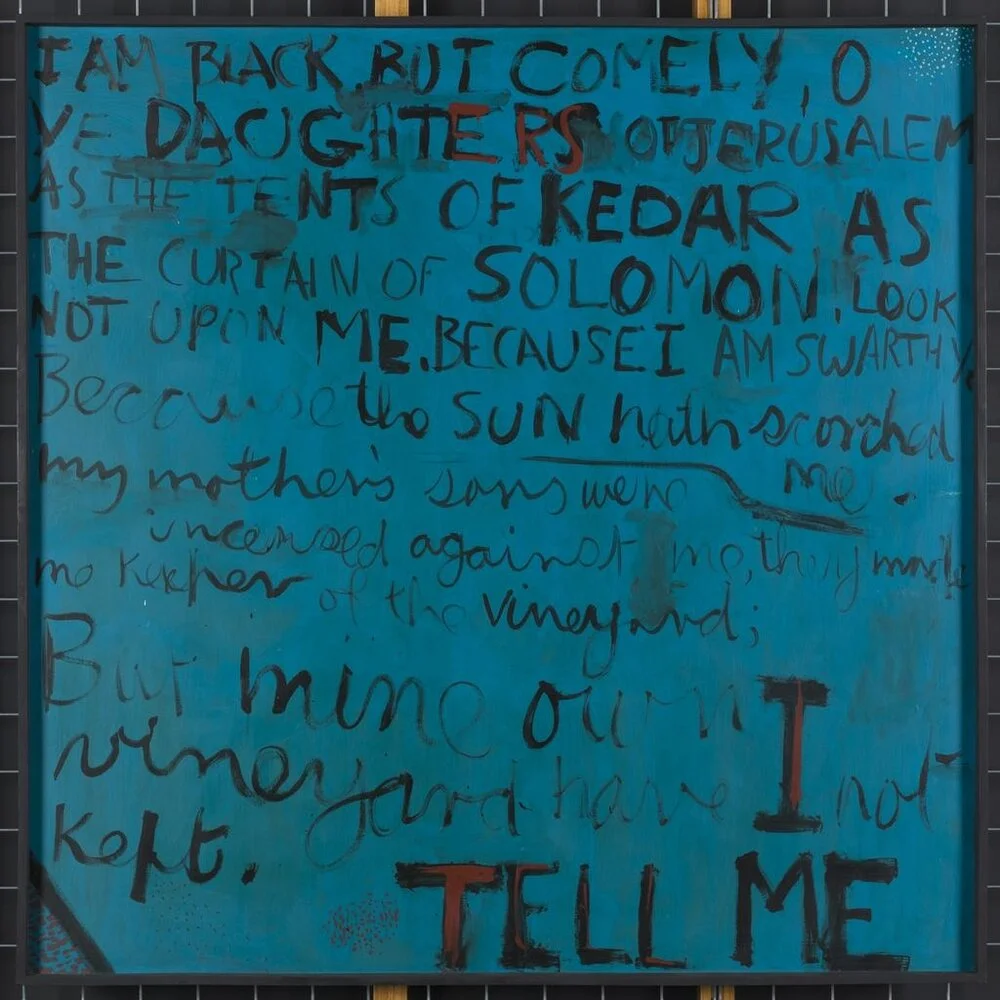 I AM BLACK BUT COMELY, O
YE DAUGHTERS OF JERUSALEM
AS THE TENTS OF KEDAR AS
THE CURTAIN OF SOLOMON. LOOK
NOT UPON ME. BECAUSE I AM SWARTHY.
Because the SUN hath scorched
me.
my mother's sons were
incensed against me, they made
me keeper of the vineyard;
But mine own
vineyard have I not
kept.
TELL ME